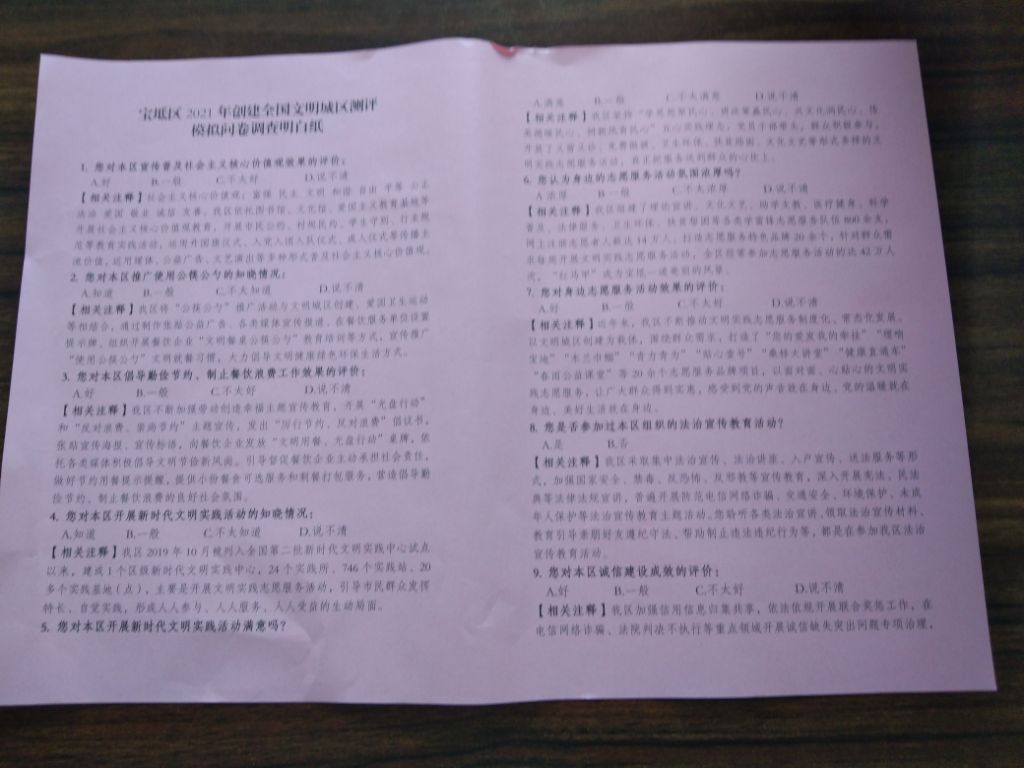 宝坻区 2021 年创建全国文明城区测评
模拟问卷调查明白纸
1. 您对本区宣传普及社会主义核心价值观效果的评价：
A.好 B.一般 C.不太好 D.说不清
【相关注释】社会主义核心价值观：富强 民主 文明 和谐 自由 平等 公正
法治 爱国 敬业 诚信 友善。我区依托图书馆、文化馆、爱国主义教育基地等
开展社会主义核心价值观教育，开展市民公约、村规民约、学生守则、行业规
范等教育实践活动，运用升国旗仪式、入党入团入队仪式、成人仪式等传播主
流价值，运用媒体、公益广告、文艺演出等多种形式普及社会主义核心价值观。
2. 您对本区推广使用公筷公勺的知晓情况：
A.知道 B.一般 C.不大知道 D.说不清
【相关注释】我区将“公筷公勺”推广活动与文明城区创建、爱国卫生运动
等相结合，通过制作张贴公益广告、各类媒体宣传报道、在餐饮服务单位设置
提示牌、组织开展餐饮企业“文明餐桌公筷公勺”教育培训等方式，宣传推广
“使用公筷公勺”文明就餐习惯，大力倡导文明健康绿色环保生活方式。
3. 您对本区倡导勤俭节约、制止餐饮浪费工作效果的评价：
A.好 B.一般 C.不太好 D.说不清
【相关注释】我区不断加强劳动创造幸福主题宣传教育，开展“光盘行动”
和“反对浪费、崇尚节约”主题宣传，发出“厉行节约、反对浪费”倡议书，
张贴宣传海报、宣传标语，向餐饮企业发放“文明用餐、光盘行动”桌牌，依
托各类媒体积极倡导文明节俭新风尚。引导督促餐饮企业主动承担社会责任，
做好节约用餐提示提醒，提供小份餐食可选服务和剩餐打包服务，营造倡导勤
俭节约、制止餐饮浪费的良好社会氛围。
4. 您对本区开展新时代文明实践活动的知晓情况：
A.知道 B.一般 C.不大知道 D.说不清
【相关注释】我区 2019 年 10 月被列入全国第二批新时代文明实践中心试点
以来，建成 1 个区级新时代文明实践中心，24 个实践所、746 个实践站、20
多个实践基地（点），主要是开展文明实践志愿服务活动，引导市民群众发挥
特长、自觉实践，形成人人参与、人人服务、人人受益的生动局面。
5. 您对本区开展新时代文明实践活动满意吗?
A.满意 B.一般 C.不大满意 D.说不清
【相关注释】我区坚持“学思想聚民心、讲政策赢民心、兴文化润民心、传
美德暖民心、树新风育民心”五心实践理念，党员干部带头，群众积极参与，
开展了义剪义诊、免费配镜、卫生环保、扶贫助困、文化文艺等形式多样的文
明实践志愿服务活动，真正把服务送到群众的心坎上。
6. 您认为身边的志愿服务活动氛围浓厚吗?
A 浓厚 B.一般 C.不大浓厚 D.说不清
【相关注释】我区组建了理论宣讲、文化文艺、助学支教、医疗健身、科学
普及、法律服务、卫生环保、扶贫帮困等各类学雷锋志愿服务队伍 800 余支，
网上注册志愿者人数达 14 万人，打造志愿服务特色品牌 20 余个，针对群众需
求每周开展文明实践志愿服务活动，全区经常参加志愿服务活动的达 42 万人
次，“红马甲”成为宝坻一道亮丽的风景。
7. 您对身边志愿服务活动效果的评价：
A.好 B.一般 C.不大好 D.说不清
【相关注释】近年来，我区不断推动文明实践志愿服务制度化、常态化发展。
以文明城区创建为载体，围绕群众需求，打造了“您的爱发我的牵挂”“缨响
宝地”“木兰巾帼”“青力青为”“贴心壹号”“桑梓大讲堂”“健康直通车”
“春雨公益课堂”等 20 余个志愿服务品牌项目，以面对面、心贴心的文明实
践志愿服务，让广大群众得到实惠，感受到党的声音就在身边、党的温暖就在
身边、美好生活就在身边。
8. 您是否参加过本区组织的法治宣传教育活动?
A.是 B.否
【相关注释】我区采取集中法治宣传、法治讲座、入户宣传、送法服务等形
式，加强国家安全、禁毒、反恐怖、反邪教等宣传教育，深入开展宪法、民法
典等法律法规宣讲，普遍开展防范电信网络诈骗、交通安全、环境保护、未成
年人保护等法治宣传教育主题活动。您聆听各类法治宣讲，领取法治宣传材料、
教育引导亲朋好友遵纪守法、帮助制止违法违纪行为等，都是在参加我区法治
宣传教育活动。
9. 您对本区诚信建设成效的评价：
A.好 B.一般 C.不太好 D.说不清
【相关注释】我区加强信用信息归集共享，依法依规开展联合奖惩工作，在
电信网络诈骗、法院判决不执行等重点领域开展诚信缺失突出问题专项治理，